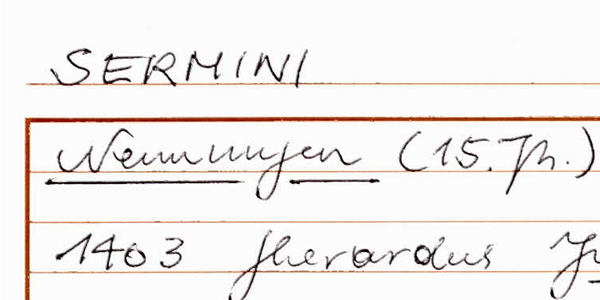 SERMINI
Nennungen (15. Jh.)
1403 Gherardus